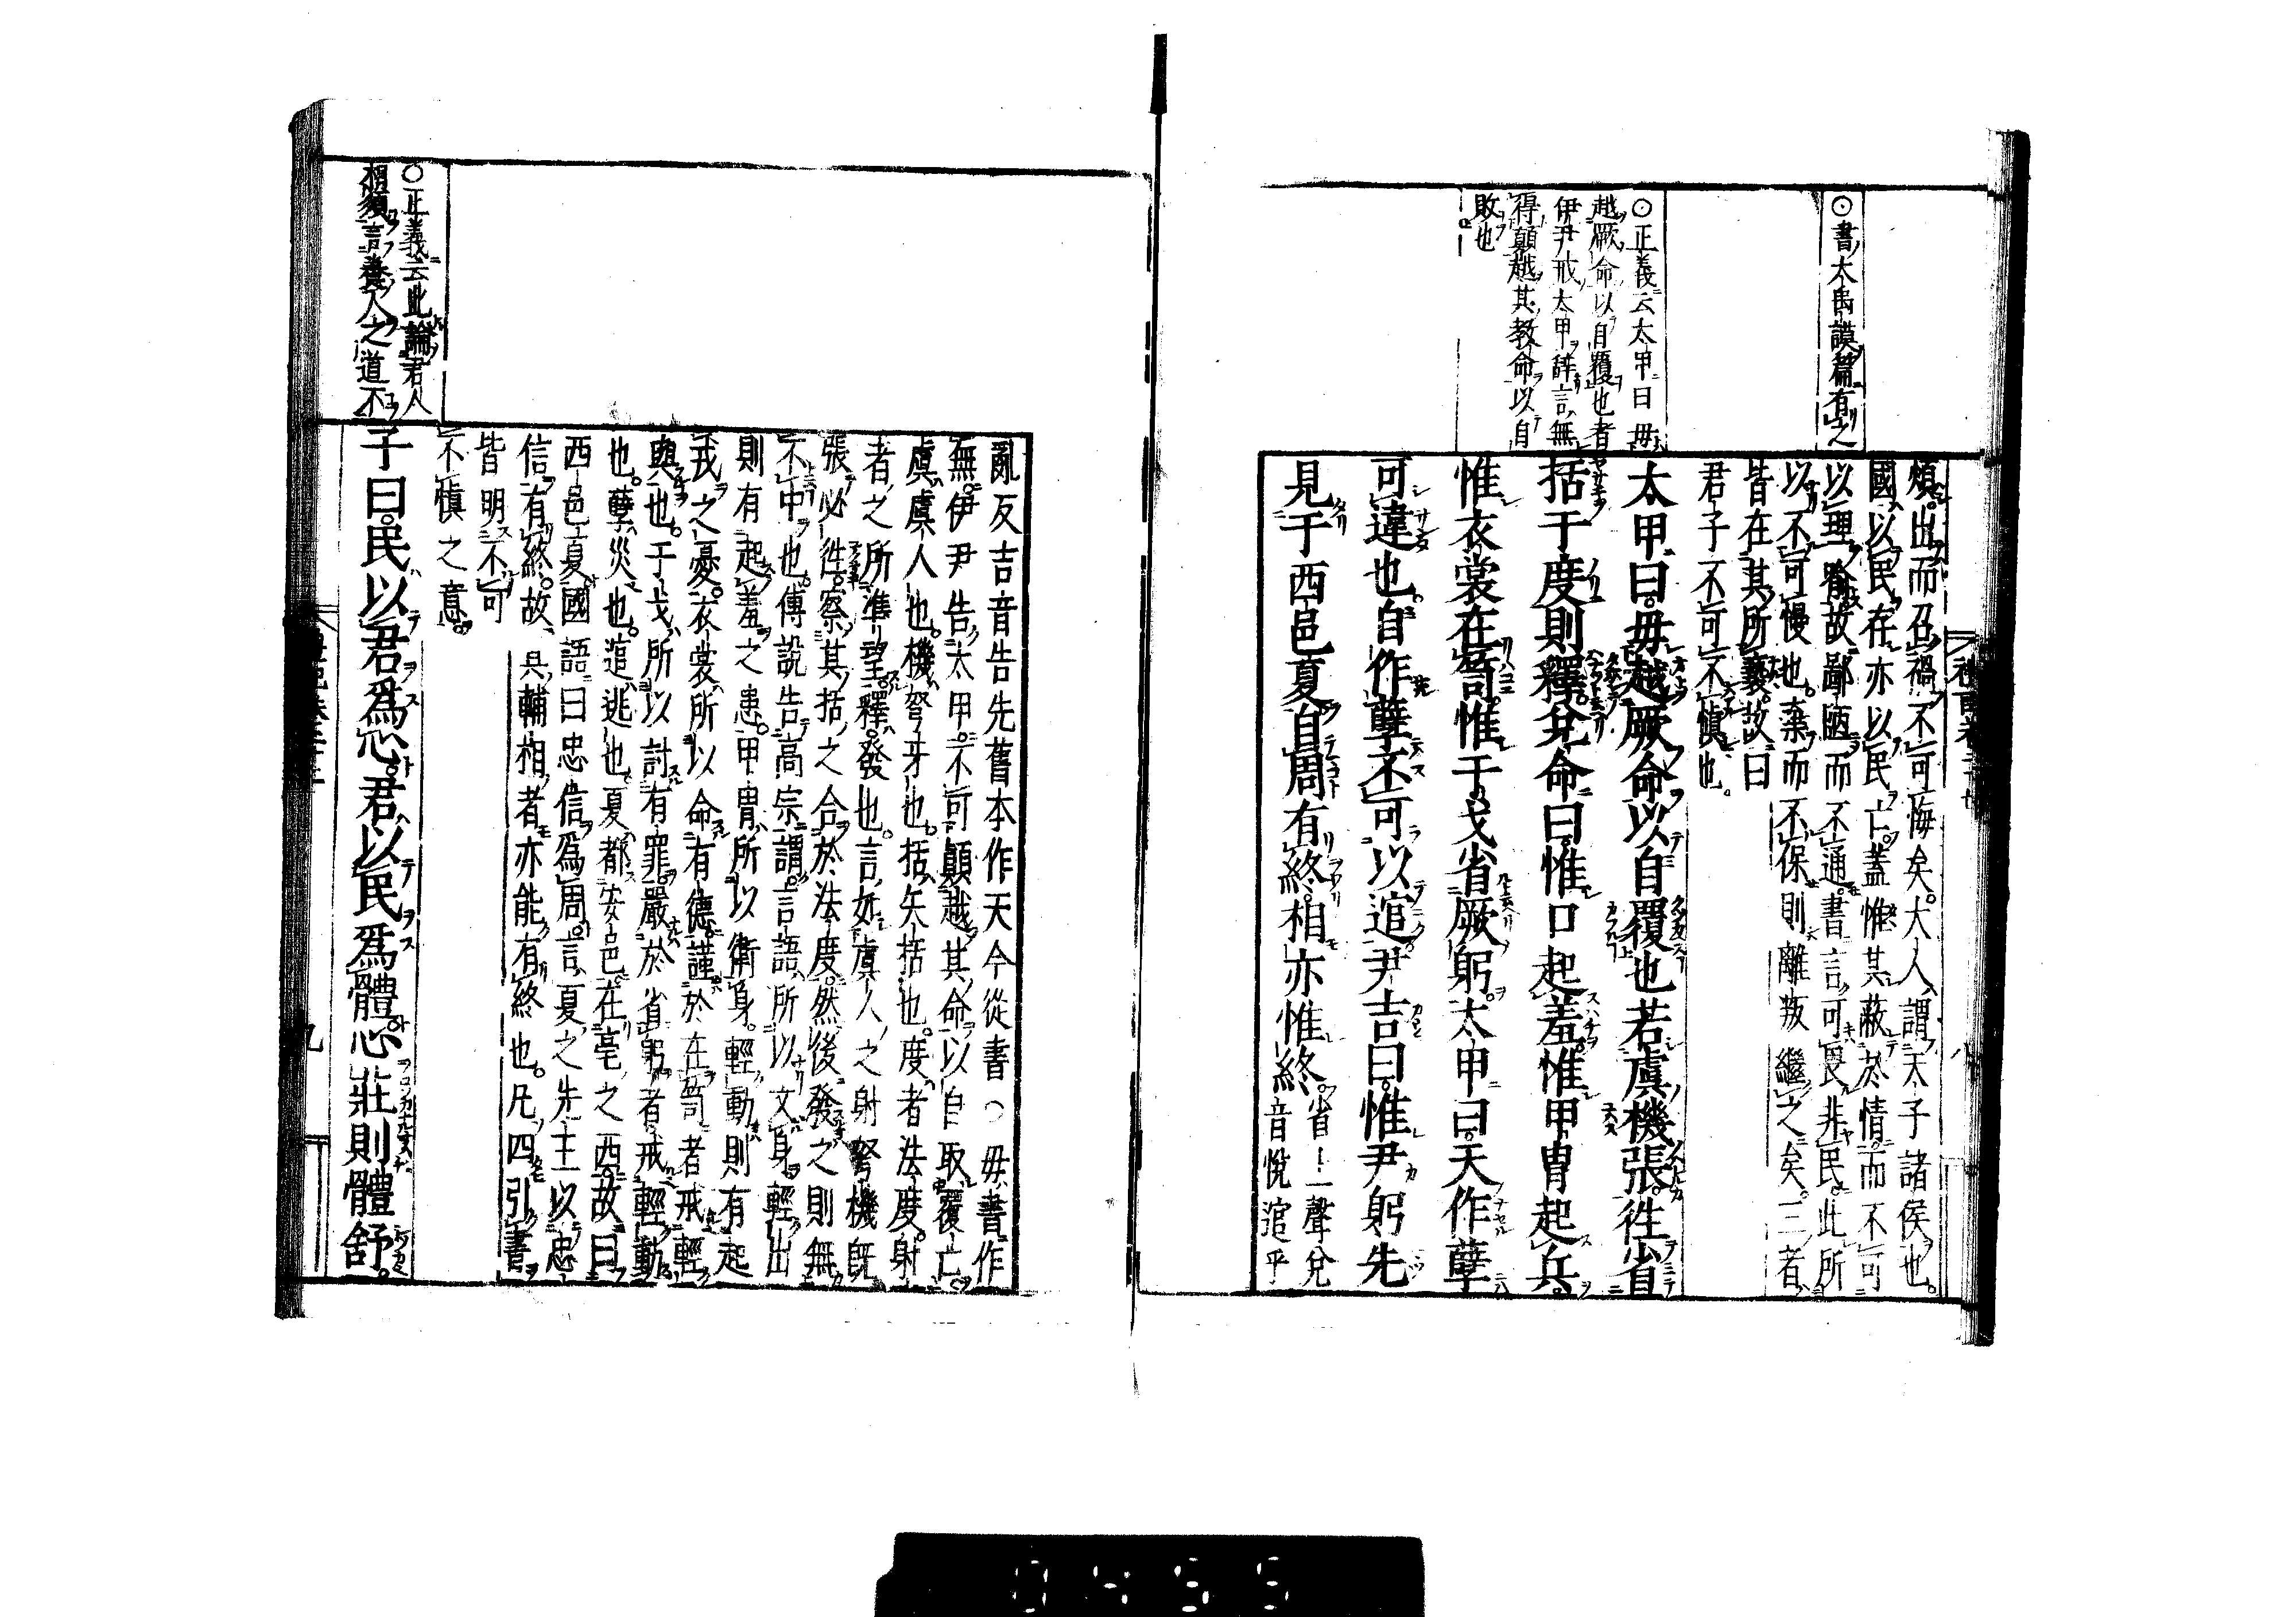 ⊙書太禹謨篇有之
⊙正義云太甲曰毋
越厥命以自覆也者
伊尹戒太甲辞言無
得顛越其教命以自
敗也
煩出而召禍不可悔矣大人謂天子諸侯也
國以民存亦以民亡蓋惟其蔽於情而不可
以理喩故鄙陋而不通書言可畏非民此所
以不可慢也棄而不保則離叛繼之矣三者
皆在其所褻故曰
君子不可不愼也
太甲曰毋越厥命以自覆也若虞機張徃省
括于度則釋兌命曰惟口起羞惟甲冑起兵
惟衣裳在笥惟干戈省厥躬太甲曰天作孽
可違也自作孽不可以逭尹吉曰惟尹躬先
見于西邑夏自周有終相亦惟終省上聲兌
音悅逭乎
亂反吉音告先舊本作天今從書○毋書作
無伊尹告太甲不可顛越其命以自取覆亡
虞虞人也機弩牙也括矢括也度者法度射
者之所準望釋發也言如虞人之射弩機旣
張必徃察其括之合於法度然後發之則無
不中也傅說告高宗謂言語所以文身輕出
則有起羞之患甲冑所以衛身輕動則有起
戎之憂衣裳所以命有德謹於在笥者戒輕
與也干戈所以討有罪嚴於省躬者戒輕動
也孽災也逭逃也夏都安邑在亳之西故曰
西邑夏國語曰忠信爲周言夏之先王以忠
信有終故其輔相者亦能有終也凡四引書
皆明不可
不愼之意
○正義云此論君人
相須言養人之道不
子曰民以君爲心君以民爲體心莊則體舒
九